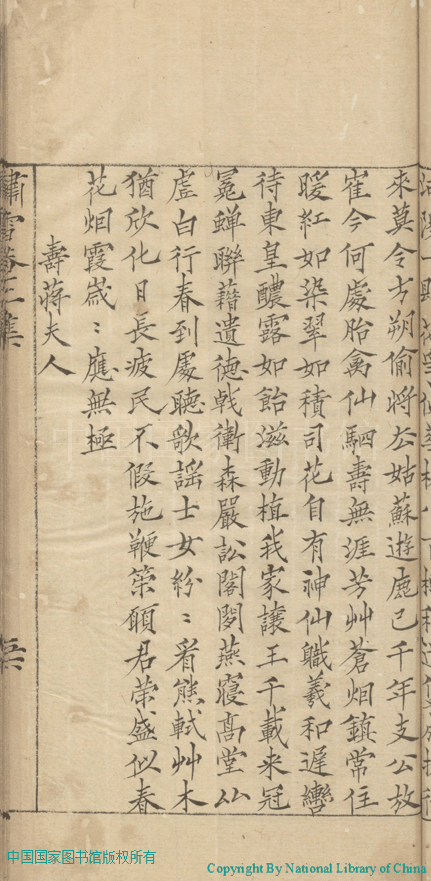 來莫令方朔偷將去姑蘇遊鹿已千年支公放
隺今何處胎禽仙駟壽無涯芳艸蒼烟鎮常住
暖紅如染翠如積司花自有神仙職羲和遲轡
待東皇醲露如飴滋動植我家讓王千載來冠
冕蟬聯藉遺德戟衛森嚴訟閣閴燕寢高堂𠆩
虛白行春到處聽歌謡士女紛〻看熊軾艸木
猶欣化日長疲民不假施鞭策願君榮盛似春
花烟霞嵗〻應無極
壽蔣夫人
中国国家图书馆版权所有
Copyright By National Library of China